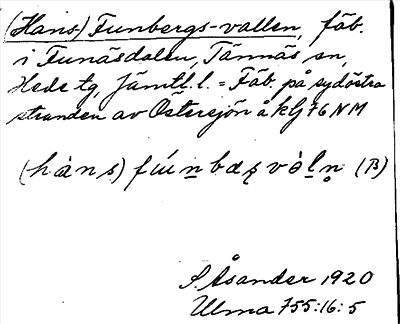 (Hans-) Funbergs-vallen, fäb.
i Funäsdalen, Tännäs sn,
Hede tg, Jämtl. l. = Fäb. på sydöstra
stranden av Östersjön å kbl 76 NM
(hàns) fúnbærvàln (B)
S. Åsander 1920
Ulma 755:16:5